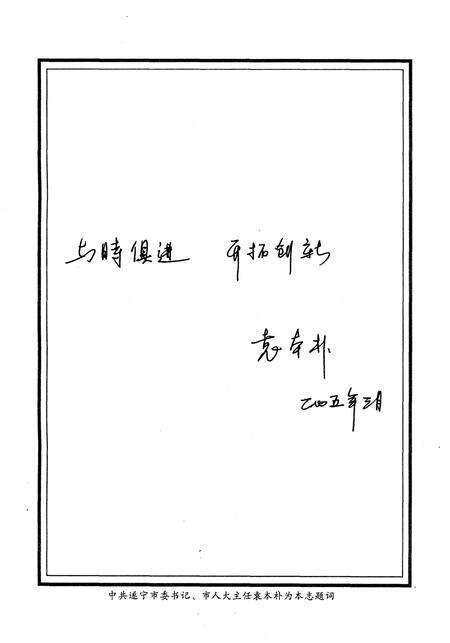 与時俱進 开拓创新
袁本朴
二〇〇五年三月
中共遂宁市委书记、市人大主任袁本朴为本志题词